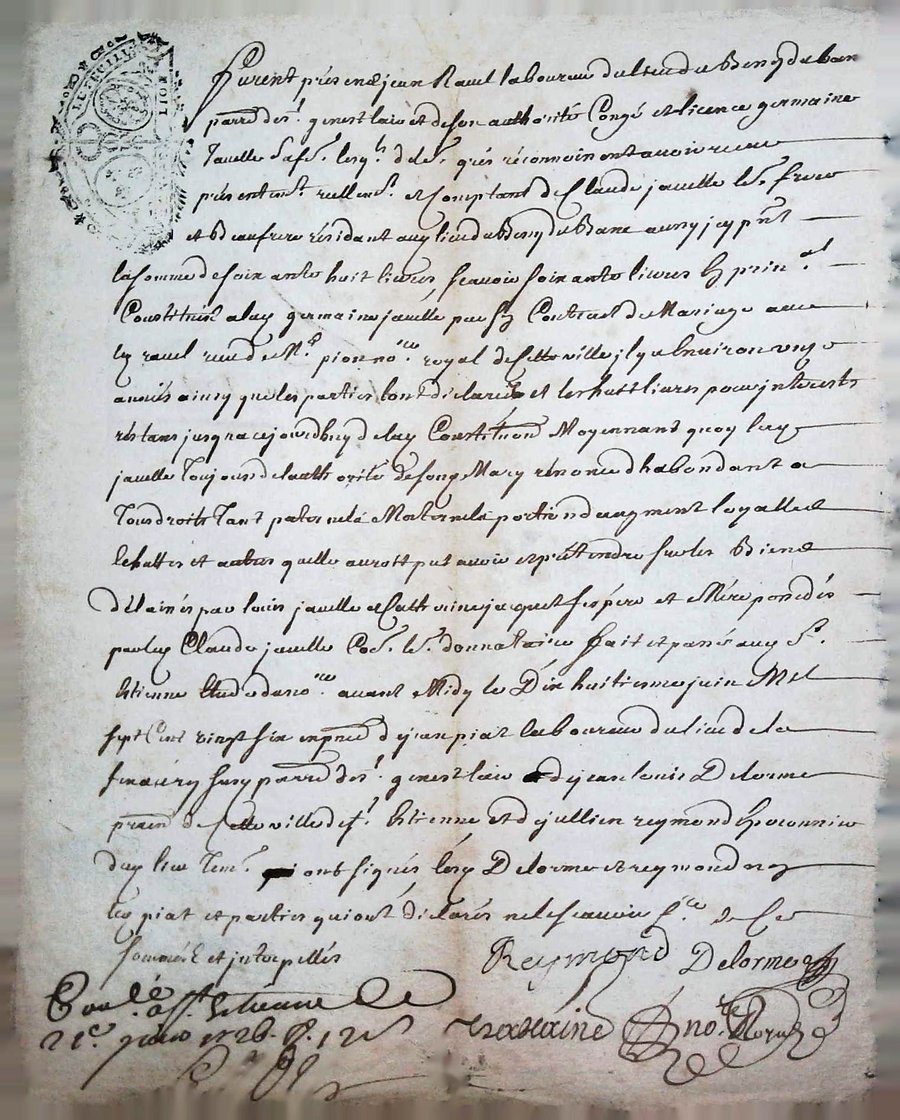 LE FEUILL
LION
furent présens jean Ravel laboureur du lieu du Bency du ban
parroe de st genest laix et de son authorité Congé et licence germaine
javelle sa fe lesqls de le gréz réconnoissent avoir receu
présentemt réellemt et Comptant de Claude javelle le frere
et Beaufrere résidant au lieu du Bency du Banc aussy jcy pnt
la somme de soixante huit livres scavoir soixante livres prinal
Constituée a lad germaine javelle par son Contract de Mariage avec
led ravel receu de Me pion nore royal de Cette ville jl y a Environ vingt
années ainsy que les parties l'ont déclaréz et les huit livres pour jnterests
réstans jusqua ce jourdhuy de lad Constitution Moyennant quoy lad
javelle Toujours de lauthorité de sond Mary rénonce d'habondant a
Tous droits Tant paternels Maternels portion d'augment legalles
Echuttes et autres quelle auroit put avoir et prétendre sur les Biens
délaissés par louis javelle et Catherine jacquet ses père et Mère possédés
par led Claude javelle Coe le donnataire fait et passé aud St
Etienne Etude du nore avant Midy le Dix huitiesme juin Mil
sept Cent vingt six en pnce de jean piat laboureur du lieu de la
susd parroe de st genest laix et de jean louis Delorme
praen de Cette ville de st Etienne et de jullien reymond
dud lieu Temt qui ont signés lesd Delorme et reymond non
led piat et parties qui ont déclarés ne le scavoir fre de Ce
sommés et jnterpellés
Reymond Delorme
Conlé a st Etienne le
21e juin 1726. R. 12 s
nore Royal